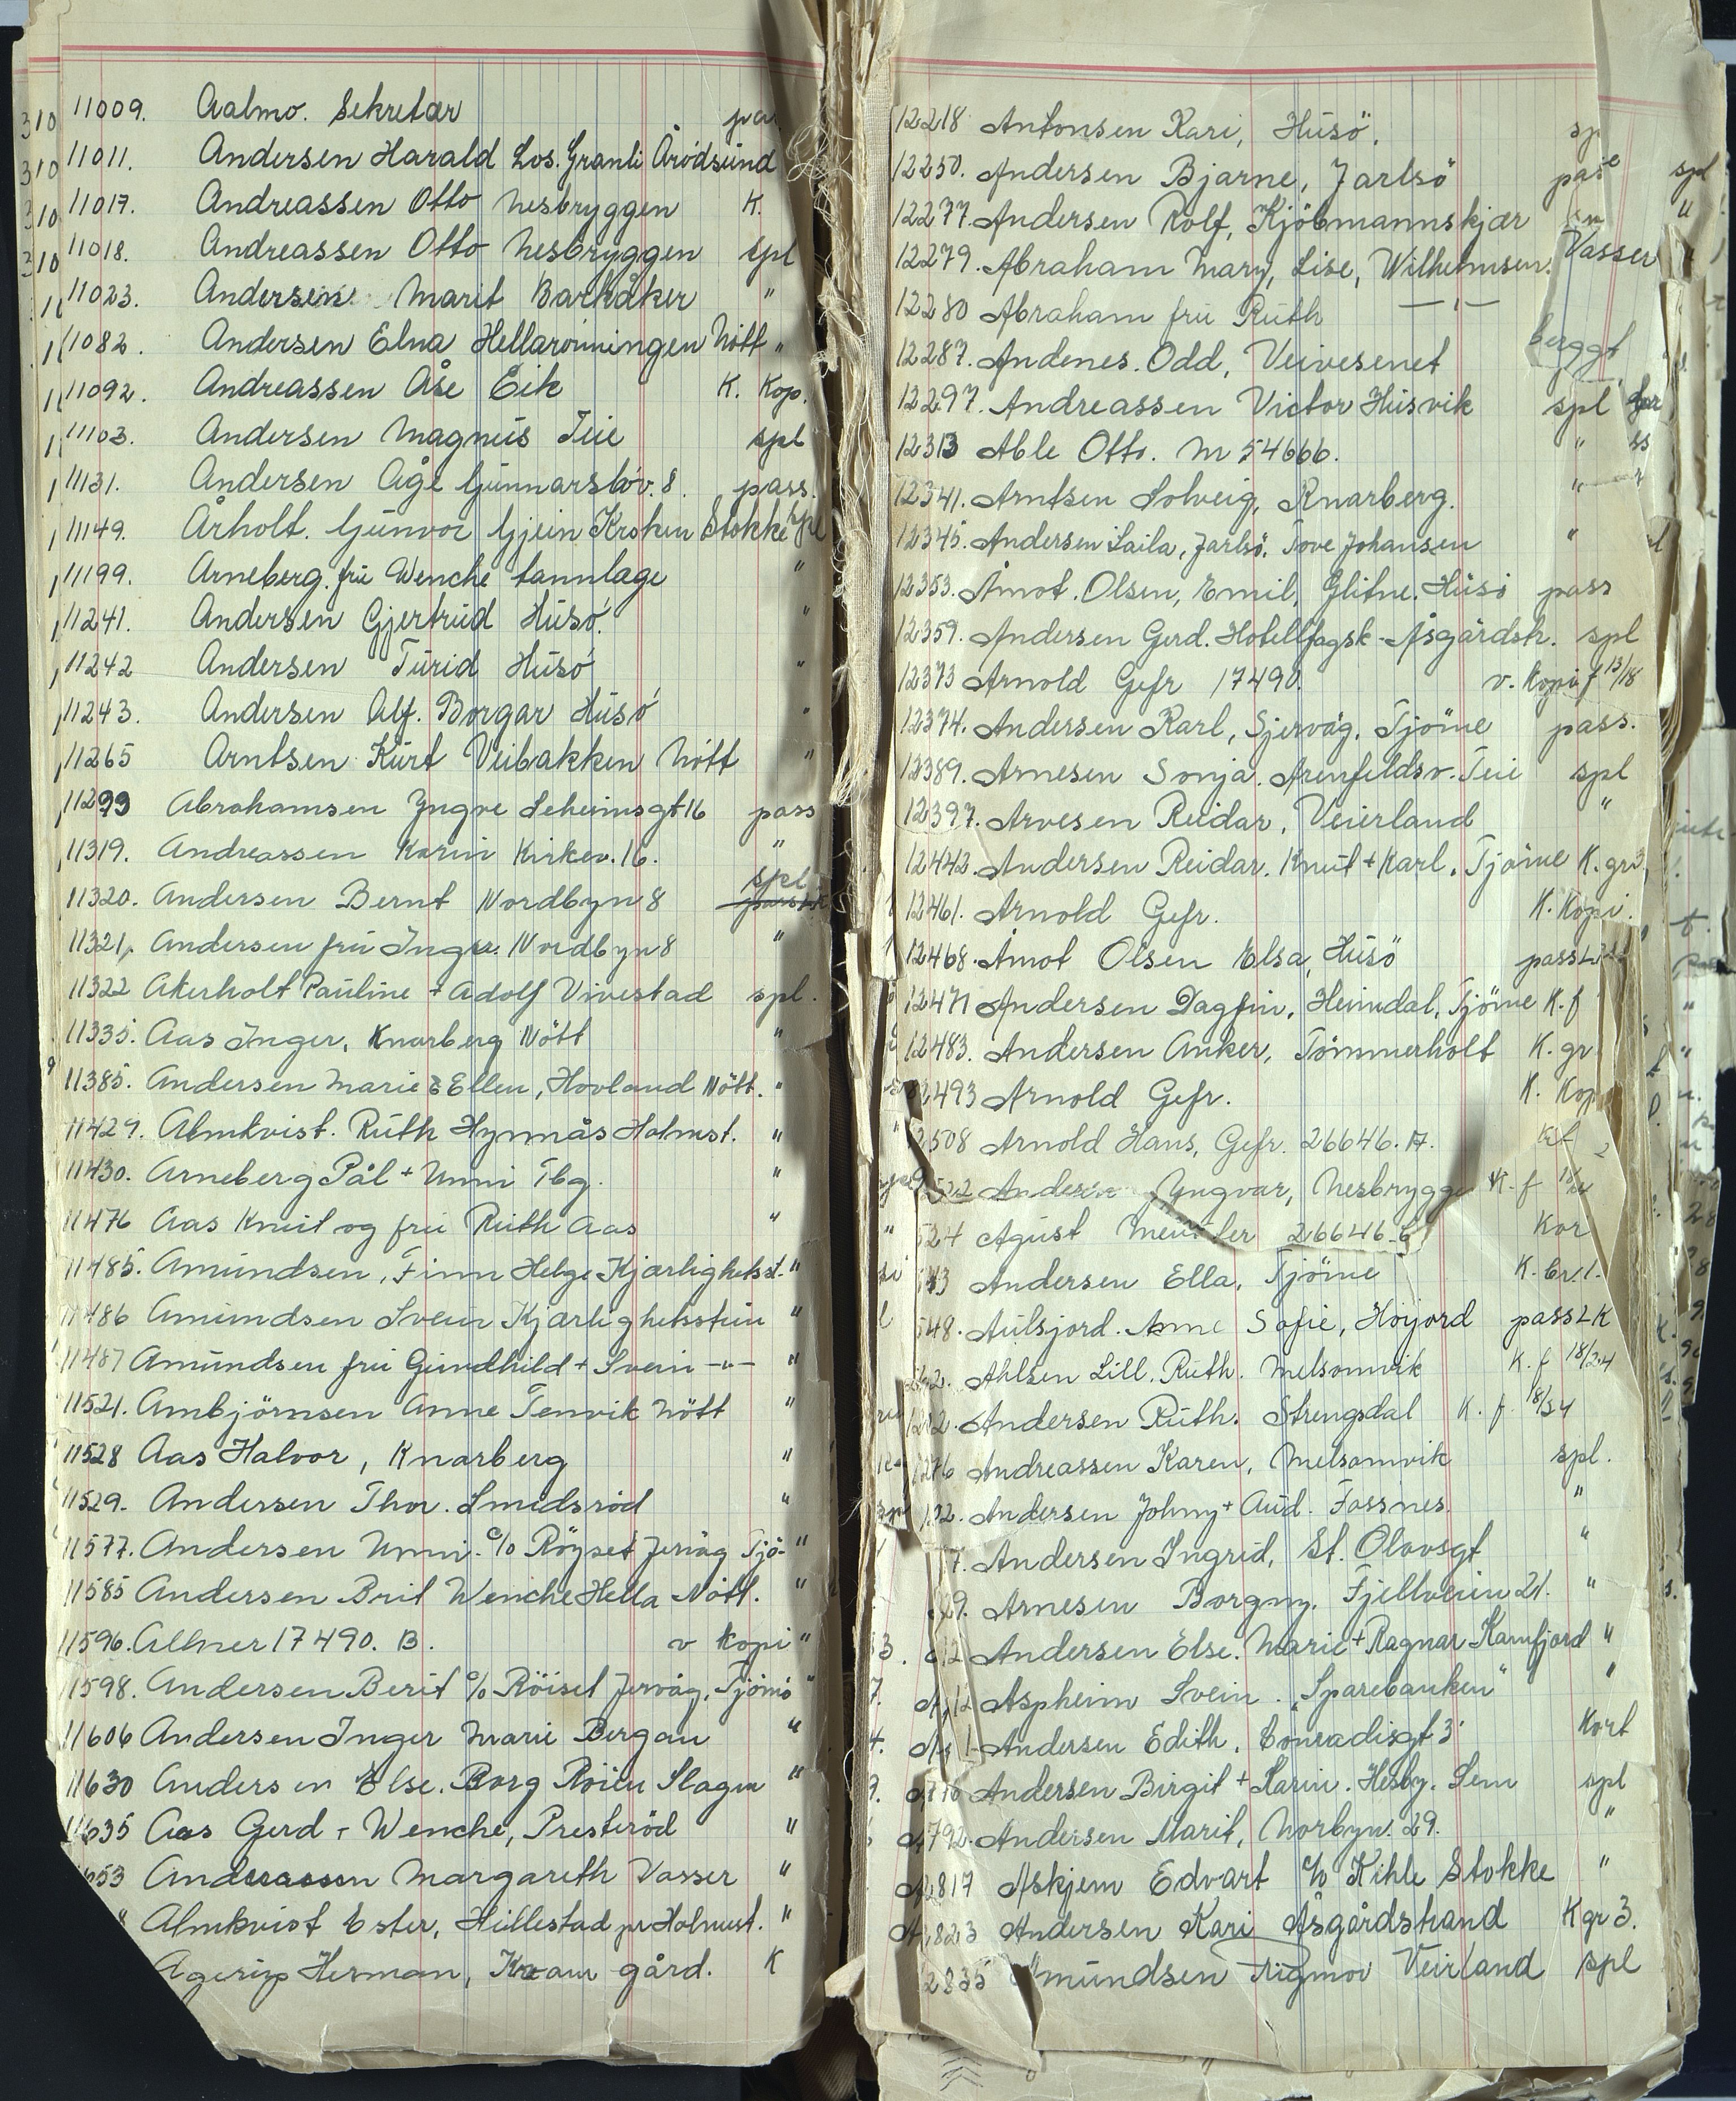 11009. Aalmo. Sekretær pa
11011. Andersen Harald Los. Granli Årödsund
11017. Andreassen Otto Nesbryggen K.
11018. Andreassen Otto Nesbryggen spl
11023. Andersen Marit Barkåker "
11082. Andersen Elna Hellarönningen Nött "
11092. Andreassen Åse Eik K. Kop.
11103. Andersen Magnus Teie spl
11131. Andersen Åge Gunnarsböv. 8. pass.
11149. Årholt. Gunvor Gjein Krsken Stokke spl
11199. Arneberg. fru Wenche tannlæge "
11241. Andersen Gjertrud Husö. "
11242 Andersen Turid Husö "
11243. Andersen Alf. Borgar Husö "
11265 Arntsen Kurt Veibakken Nött "
11299 Abrahamsen Yngve Leheimsgt 16 pass
11319. Andreassen Karin Kirkev. 16. "
11320. Andersen Bernt Nordbyn 8 spl
11321. Andersen fru Inger. Nordbyn 8 "
11322 Akerholt Pauline + Adolf Vivestad spl.
11335. Aas Inger, Knarberg Nött "
11385. Andersen Marie & Ellen, Hovland Nött. "
11429. Almkvist. Ruth Hynnås Holmst. "
11430. Arneberg Pål + Unni Tbg. "
11476 Aas Knut og fru Ruth Aas "
11485. Amundsen, Finn Helge Kjærlighetsst. "
11486 Amundsen Svein Kjærlighetsstein "
11487 Amundsen fru Gundhild + Svein -"- "
11521. Ambjörnsen Anne Tenvik Nött "
11528 Aas Halvor, Knarberg "
11529. Andersen Thor. Smidsröd "
11577. Andersen Unni. c/o Röyset Jervåg Tjö- "
11585 Andersen Brit Wenche Hella Nött. "
11596. Allner 17490. B. v Kopi "
11598. Andersen Berit c/o Röiset Jervåg, Tjömö "
11606 Andersen Inger Marie Bergan "
11630 Andersen Else. Borg Röien Slagen "
11635 Aas Gerd + Wenche, Presteröd "
653 Andreassen Margareth Vasser "
8 Almkvist Ester, Hillestad pr Holmest. "
Agerup Herman, Kvam gård. K
12218 Antonsen Kari, Husö. sp
12250. Andersen Bjarne, Jarlsö pas spl
12277. Andersen Rolf, Kjöbmannskjær "
12279. Abraham Mary, Lise, Wilhelmsen. Vasser
12280 Abraham fru Ruth —"—
12287. Andenes. Odd, Veivesenet berggt
12297. Andreassen Victor Husvik spl
12313 Able Otto. M 54666. "
12341. Arntsen Solveig, Knarberg. "
12345. Andersen Laila, Jarlsö. Tove Johansen "
12353. Åmot. Olsen, Emil, Glitne. Husö pass
12359. Andersen Gerd. Hotellfagsk- Åsgårdstr. spl
12373 Arnold Gefr 17490. v. Kopi f 13/18
12374. Andersen Karl, Sjervåg. Tjöme pass.
12389. Arnesen Sonja. Arenfeldsv. Teie spl
12397. Arvesen Reidar, Veierland "
12442. Andersen Reidar. Knut + Karl. Tjöme K. gr
12461. Arnold Gefr. K. Kopi.
12468. Åmot Olsen Elsa, Husö pass
12471 Andersen Dagfin, Heimdal, Tjöme K. f
12483. Andersen Anker, Tömmerholt K. gr
12493 Arnold Gefr. K. Kop
2508 Arnold Hans, Gefr. 26646. A. Kf
522 Anderse Yngvar, Nesbrygge K. f
524 Agust 26646-C Kor
43 Andersen Ella, Tjöme K. br. 1.
548. Aulsjord. Anne Sofie, Höijord pass 2 K
2. Ahlsen Lill. Ruth. Melsomvik K. f 18/24
2. Andersen Ruth. Strengsdal K. f. 18/24
1276 Andreassen Karen, Melsomvik spl.
2. Andersen Johny + Aud. Fossnes. "
7. Andersen Ingrid, St. Olavsgt "
29. Arnesen Borgny. Fjellveien 21. "
12 Andersen Else. Marie + Ragnar Kamfjord "
12 Aspheim Svein. "Sparebanken" "
Andersen Edith. Conradisgt 3 Kort
Andersen Birgit + Karin. Hesby. Sem spl
792. Andersen Marit, Norbyn. 29. "
2817 Askjem Edvart c/o Kihle Stokke "
2823 Andersen Kari Åsgårdstrand K gr 3.
2835 Amundsen Sigmor Veirland spl